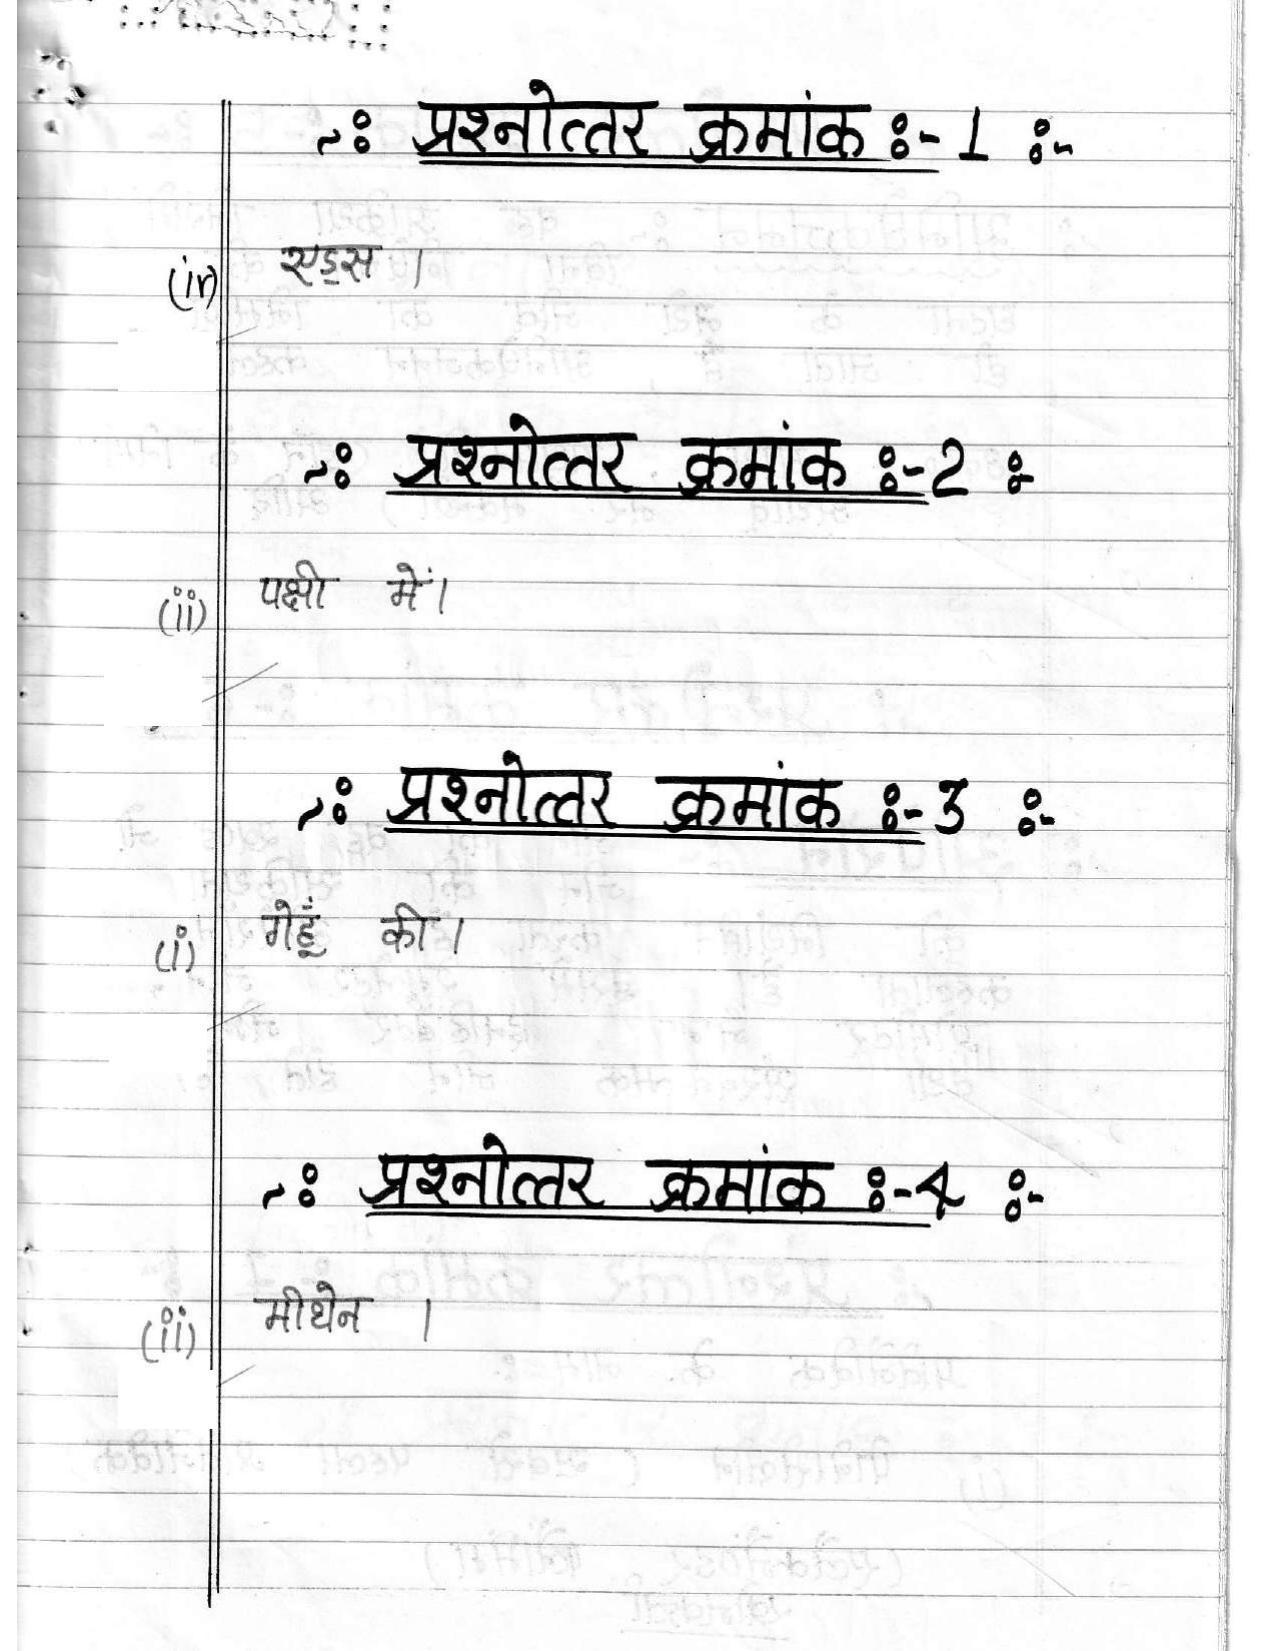 ~: प्रश्नोत्तर क्रमांक :- 1 :-
(iv) एड्स ।
~: प्रश्नोत्तर क्रमांक :- 2 :-
(ii) पक्षी में।
~: प्रश्नोत्तर क्रमांक :- 3 :-
(i) गेहूँ की ।
~: प्रश्नोत्तर क्रमांक :- 4 :-
(ii) मीथेन ।